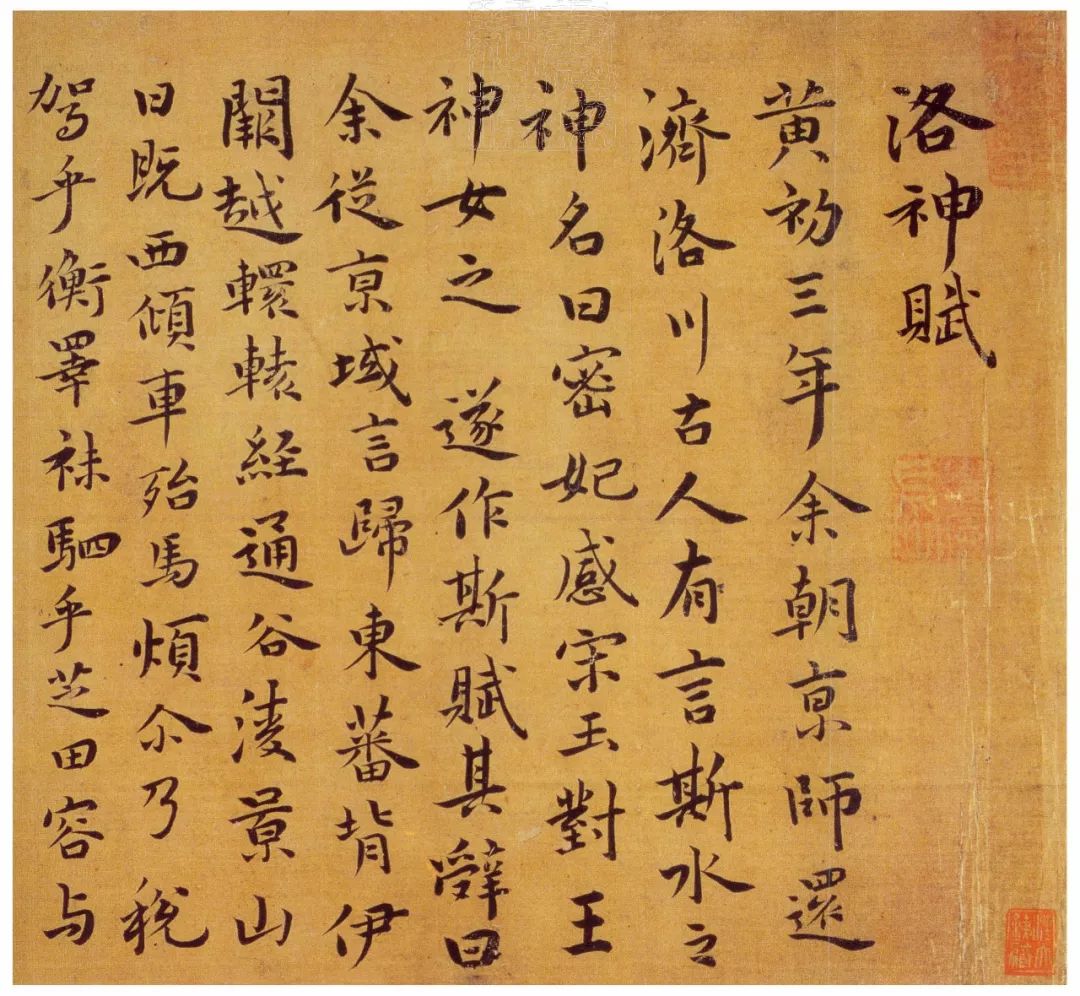 洛神賦
黄初三年余朝亰師還
濟洛川古人有言斯水之
神名曰密妃感宋玉對王
神女之 遂作斯賦其辭曰
余從亰域言歸東蕃背伊
闕越轘轅経通谷淩景山
日既西傾車殆馬煩尒乃稅
駕乎衡睪袜駟乎芝田容与